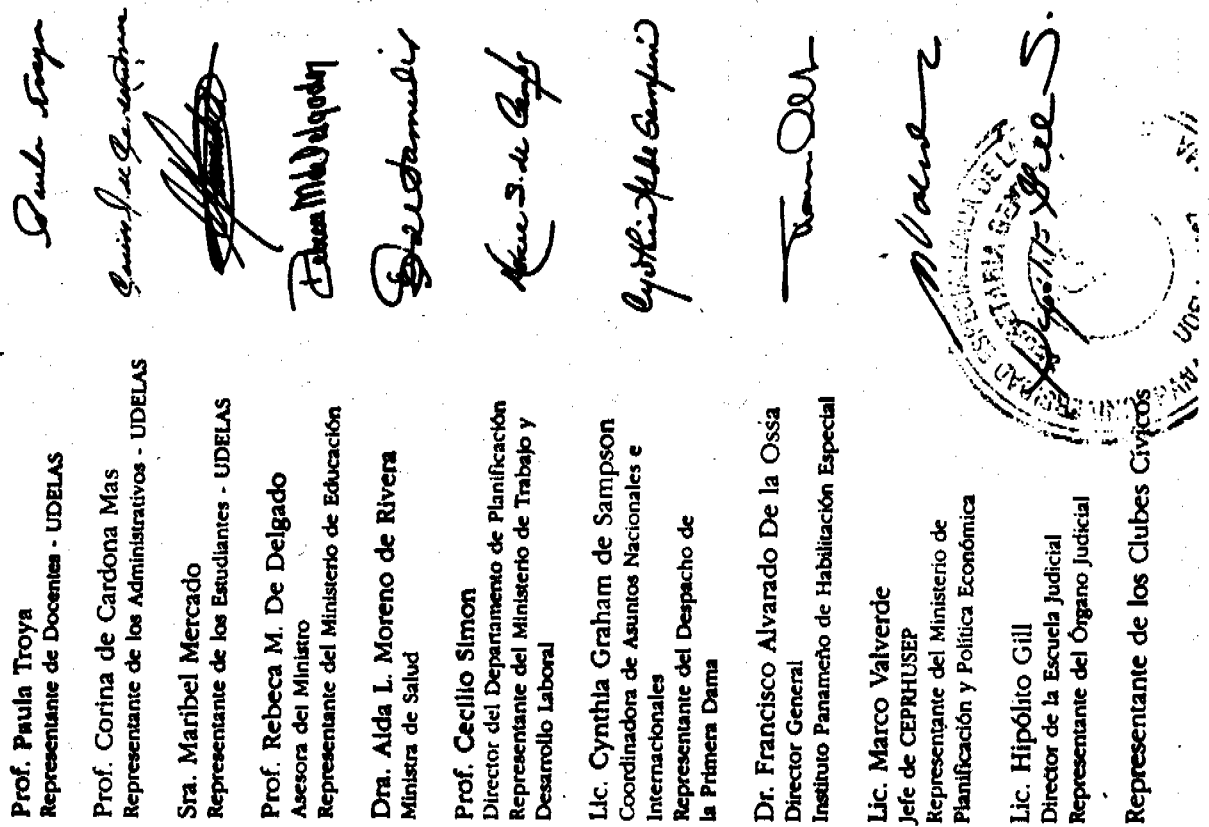 Prof. Paula Troya
Representante de Docentes - UDELAS
Paula Troya
Prof. Corina de Cardona Mas
Representante de los Administrativos - UDELAS
Sra. Maribel Mercado
Representante de los Estudiantes - UDELAS
Prof. Rebeca M. De Delgado
Asesora del Ministro
Representante del Ministerio de Educación
Rebeca M de Delgado
Dra. Aida L. Moreno de Rivera
Ministra de Salud
Prof. Cecilio Simon
Director del Departamento de Planificación
Representante del Ministerio de Trabajo y
Desarrollo Laboral
Lic. Cynthia Graham de Sampson
Coordinadora de Asuntos Nacionales e
Internacionales
Representante del Despacho de
la Primera Dama
Cynthia de Sampson
Dr. Francisco Alvarado De la Ossa
Director General
Instituto Panameño de Habilitación Especial
Lic. Marco Valverde
Jefe de CEPRHUSEP
Representante del Ministerio de
Planificación y Política Económica
Lic. Hipólito Gill
Director de la Escuela Judicial
Representante del Órgano Judicial
Hipólito Gill S.
ESPECIALIZADA DE LA
Representante de los Clubes Cívicos